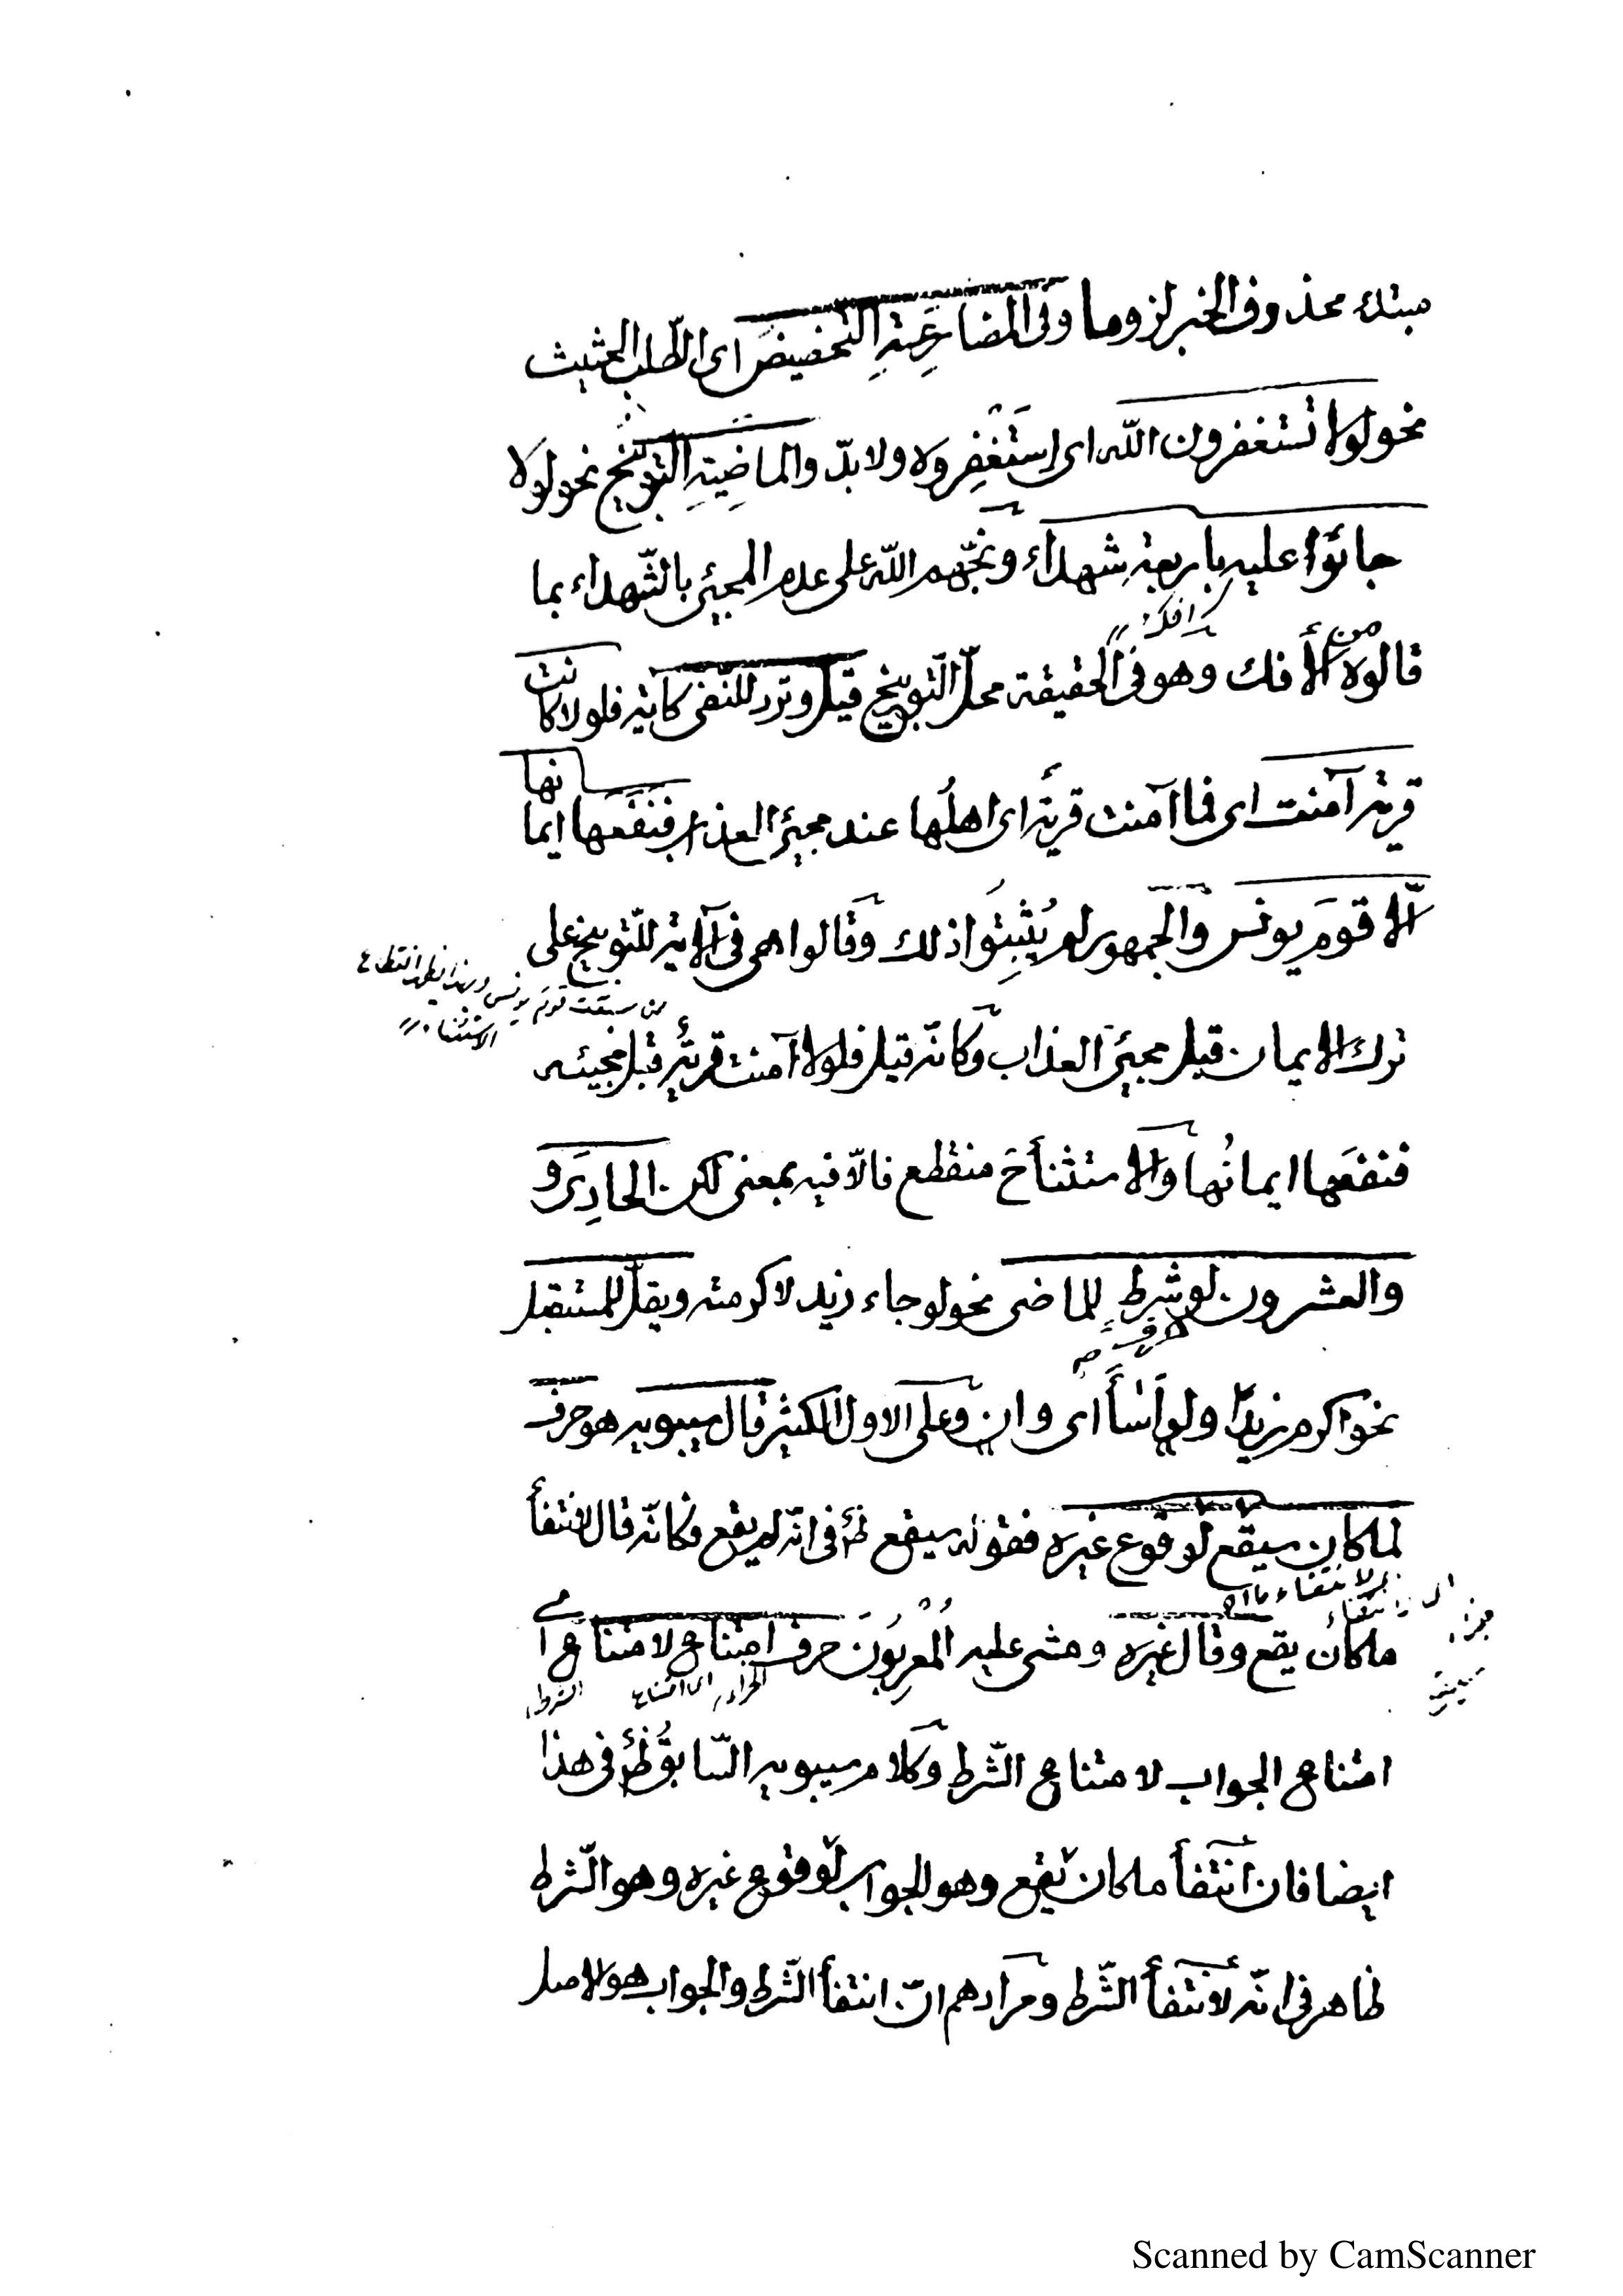 مبتدء محذوف الخبر لزوما وفى المضارِعَيَّةِ التحضيضَ اى الطّلب الحثيث
نحو لولا تستغفرون اللّه اى اِستَغْفِروه ولا بدّ والماضِيَةِ التَّوبيخ نحو لولا
جائوا عليه باربعةِ شهداء وبّخهم اللّه على عدم المجيئ بالشّهداء بما
قالوه من الأفك وهو فى الحقيقة محلّ التّوبيخ قيل وترد للنّفى كآية فلولا كانت
افك
قرية آمنت اى فما آمنت قريةٌ اى اهلُها عند مجيئ العذاب فنَفَعَها ايمانها
الّا قومَ يونس والجمهور لم يُثْبِتُوا ذلك وقالوا هى فى الآية للتّوبيخ على
من سبقت قوم يونس وبهذا يظهر انقطاع
الاستثناء
ترك الايمان قبل مجيئ العذاب وكانّه قيل فلولا آمنت قريةٌ قبل مجيئه
فنفعَها ايمانُها والاستثناءَ منقطع فالّا فيه بمعنى لكن الحادِى و
والعشرون لو شرطٍ للماضى نحو لو جاء زيد لاكرمته ويقلّ للمستقبل
حرف
نحو اكرم زيدًا ولو اَسَأَ اى وان وعلى الاول الكثير قال سيبويه هو حرف
لما كان سيقع لوقوع غيره فقوله سيقع ظ فى انّه لم يقع فكانّه قال لانتفأ
ما كان يقع وقال غيره ومشى عليه المُعْرِبُونَ حرف امتناع لامتناع اى
الجزاء اى امتناع الشرط
امتناع الجواب لامتناع الشّرط وكلام سيبويه السّابقُ ظ فى هذا
ايضا فان انتفأ ما كان يقع وهو الجواب لوقوع غيره وهو الشّرط
ظاهر فى انّه لانتفأ الشّرط ومرادهم انّ انتفأ الشّرط والجواب هو الاصل
Scanned by CamScanner